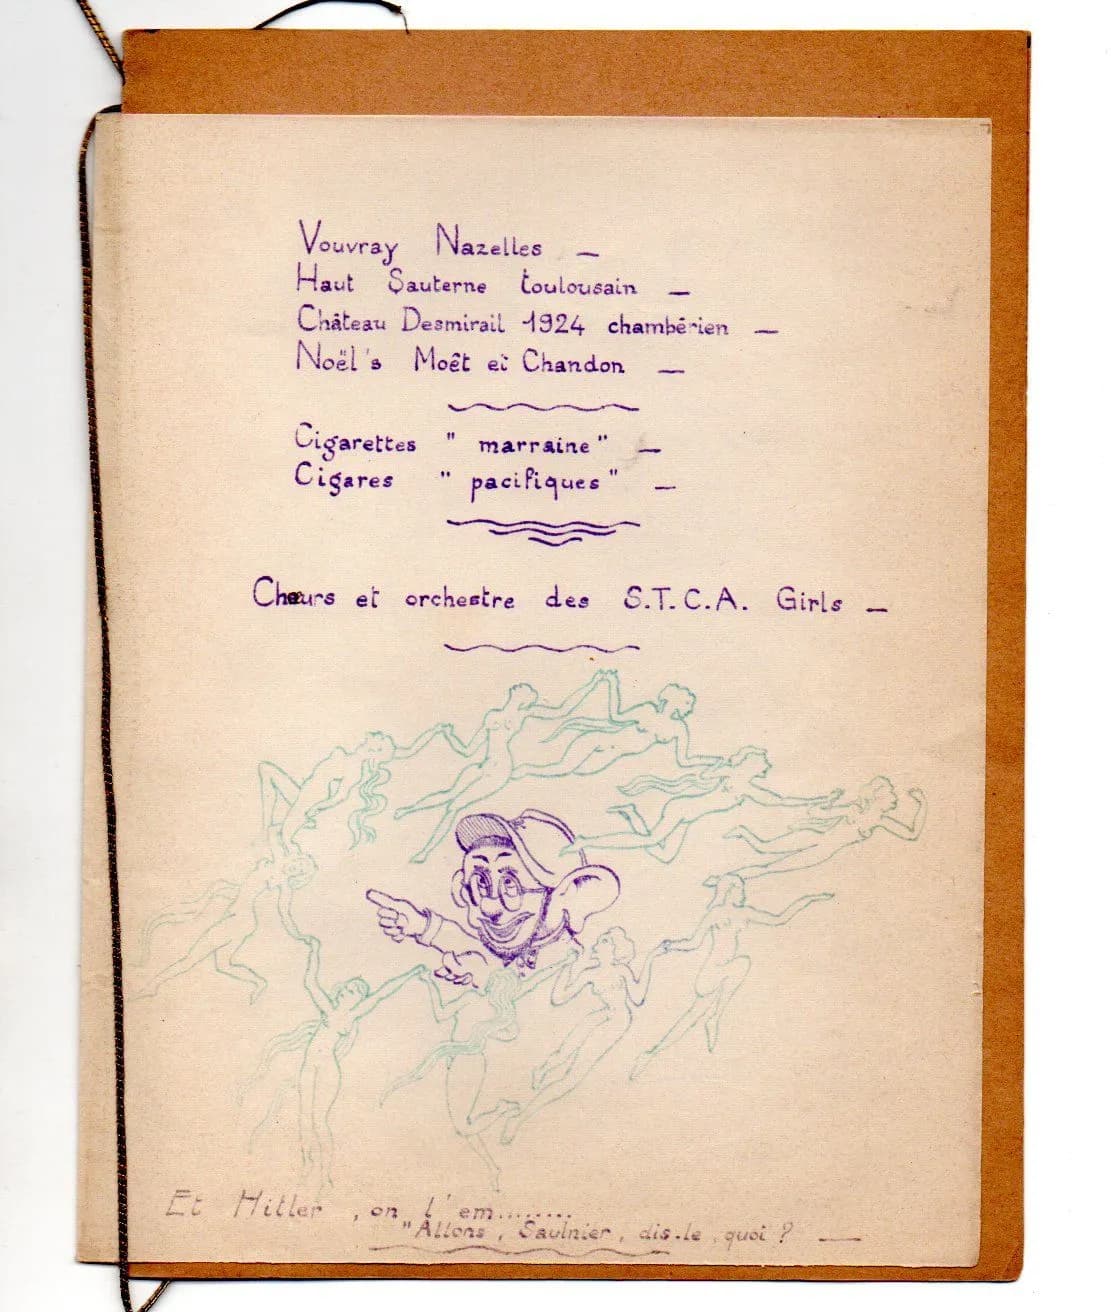 Vouvray Nazelles —
Haut Sauterne toulousain —
Château Desmirail 1924 chambérien —
Noël's Moêt et Chandon —
Cigarettes "marraine" —
Cigares "pacifiques" —
Chœurs et orchestre des S.T.C.A. Girls —
Et Hitler, on l'em........
"Allons, Saulnier, dis-le, quoi ? —